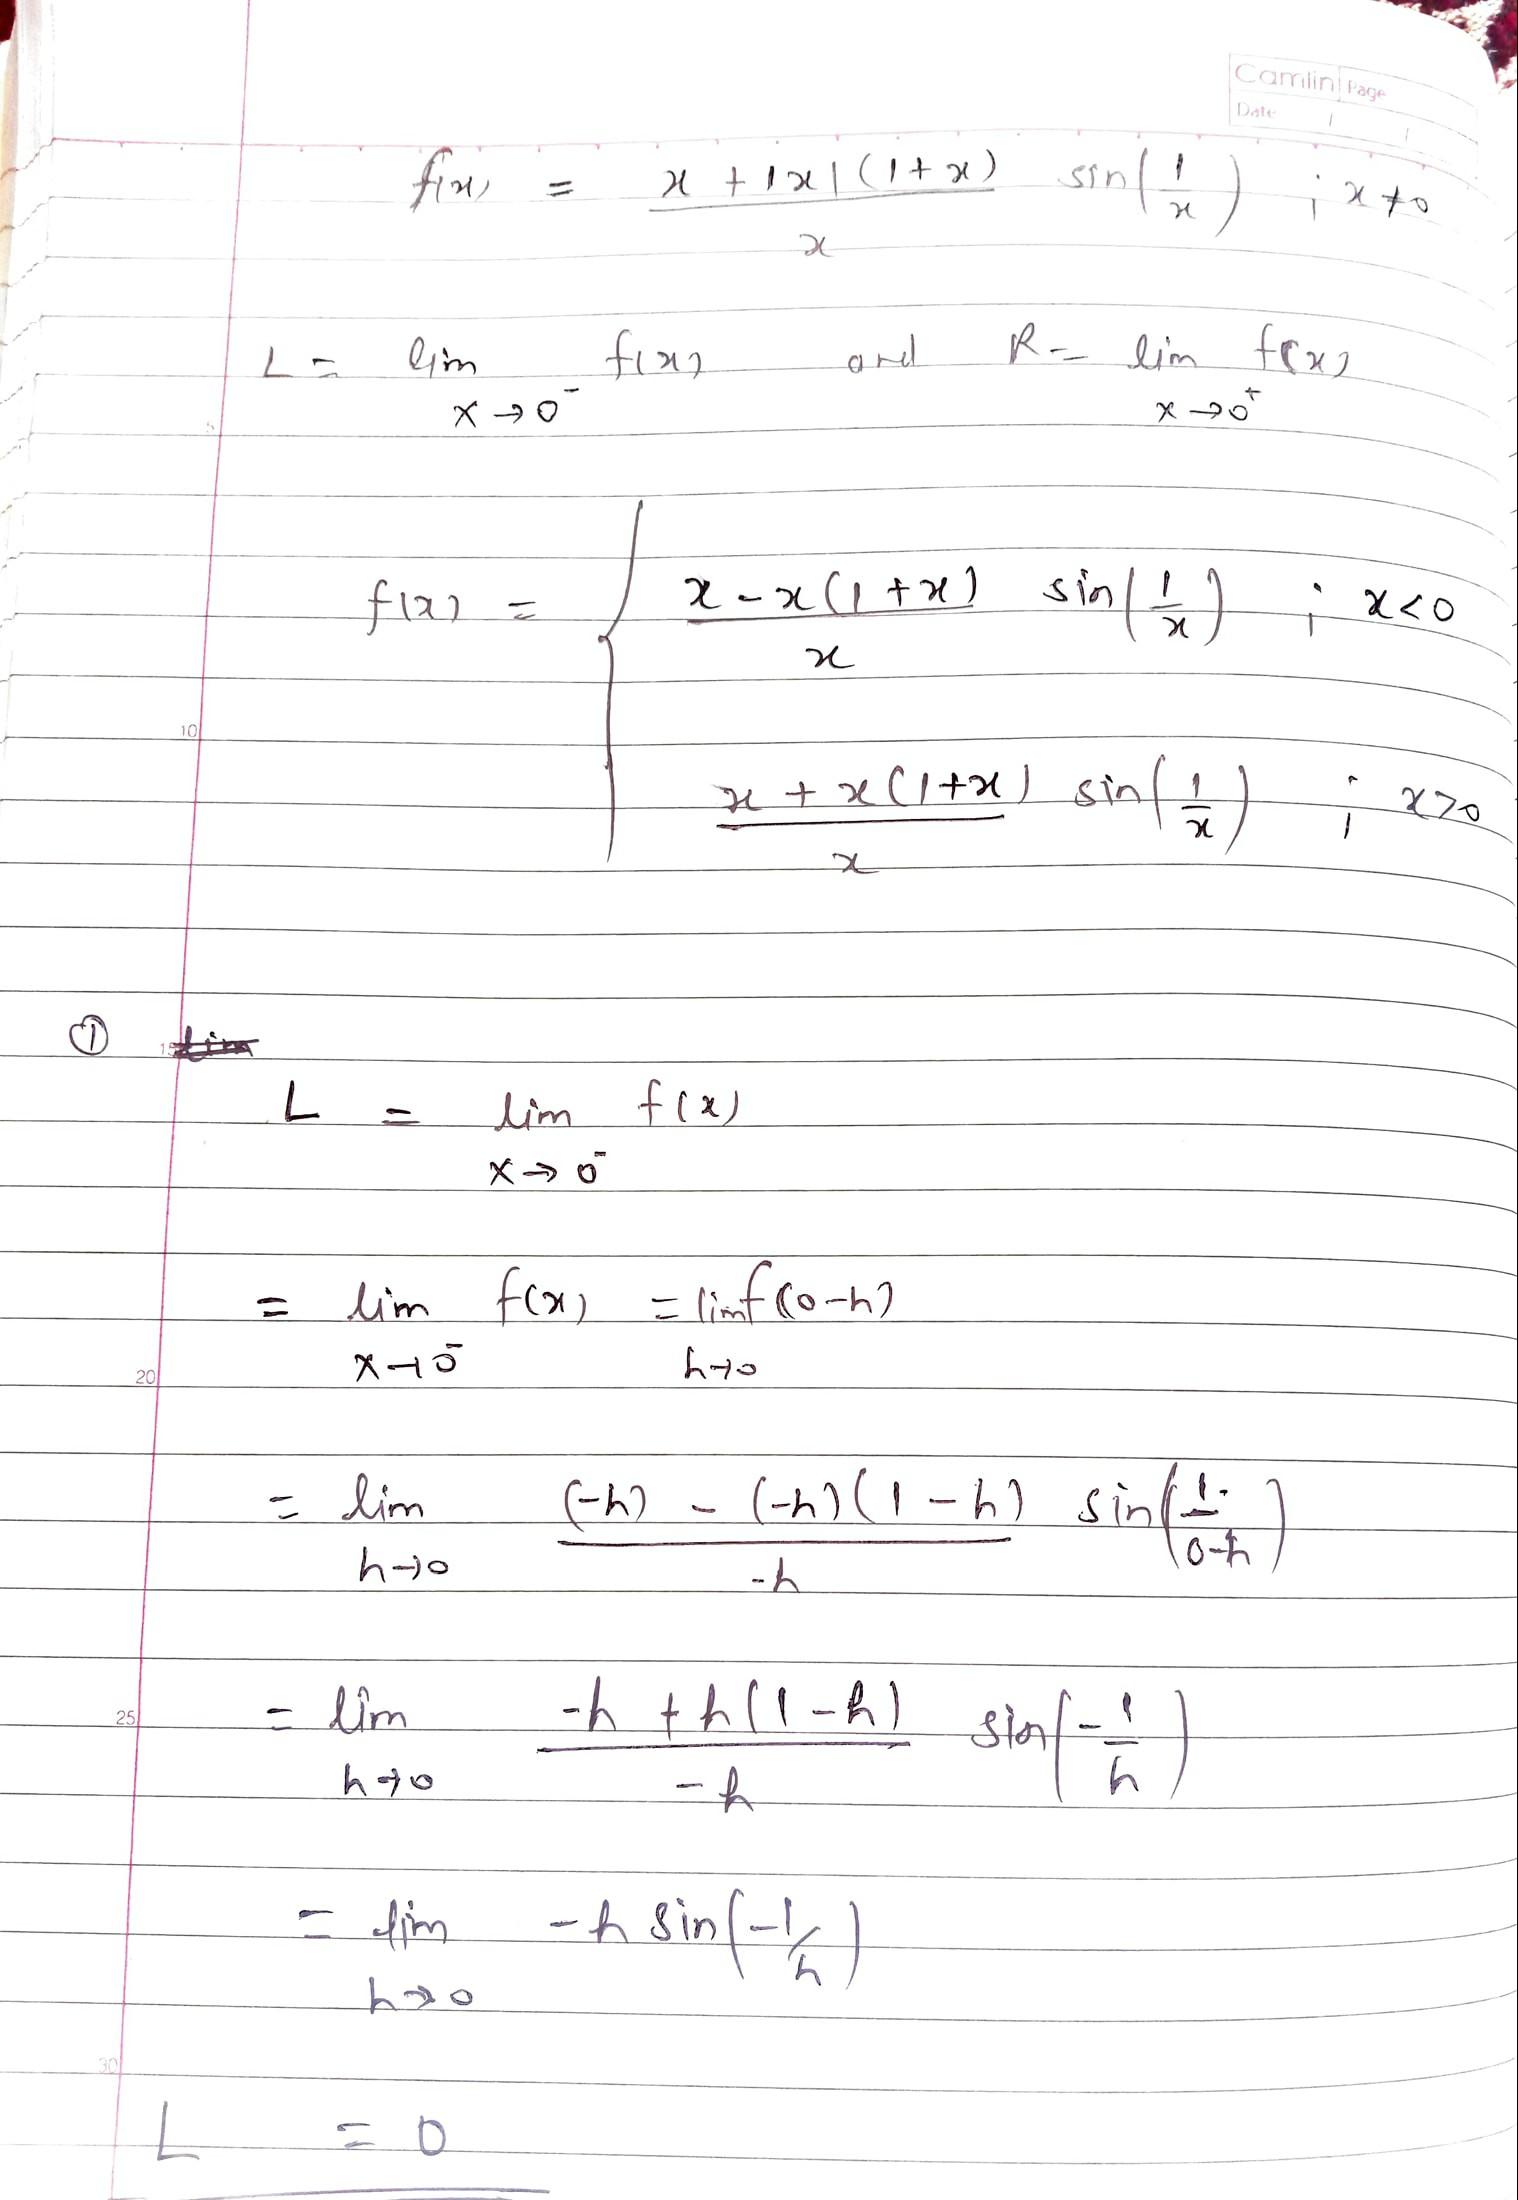 Camlin Page
Date / /
f(x) = x + |x|(1+x) / x sin(1/x) ; x≠0
L = lim x→0⁻ f(x) and R = lim x→0⁺ f(x)
5
f(x) = { x - x(1+x) / x sin(1/x) ; x<0
10
x + x(1+x) / x sin(1/x) ; x>0
① lim
15
L = lim x→0⁻ f(x)
= lim x→0⁻ f(x) = lim h→0 f(0-h)
20
= lim h→0 (-h) - (-h)(1-h) / -h sin(1/0-h)
25
= lim h→0 -h + h(1-h) / -h sin(-1/h)
= lim h→0 -h sin(-1/h)
30
L = 0